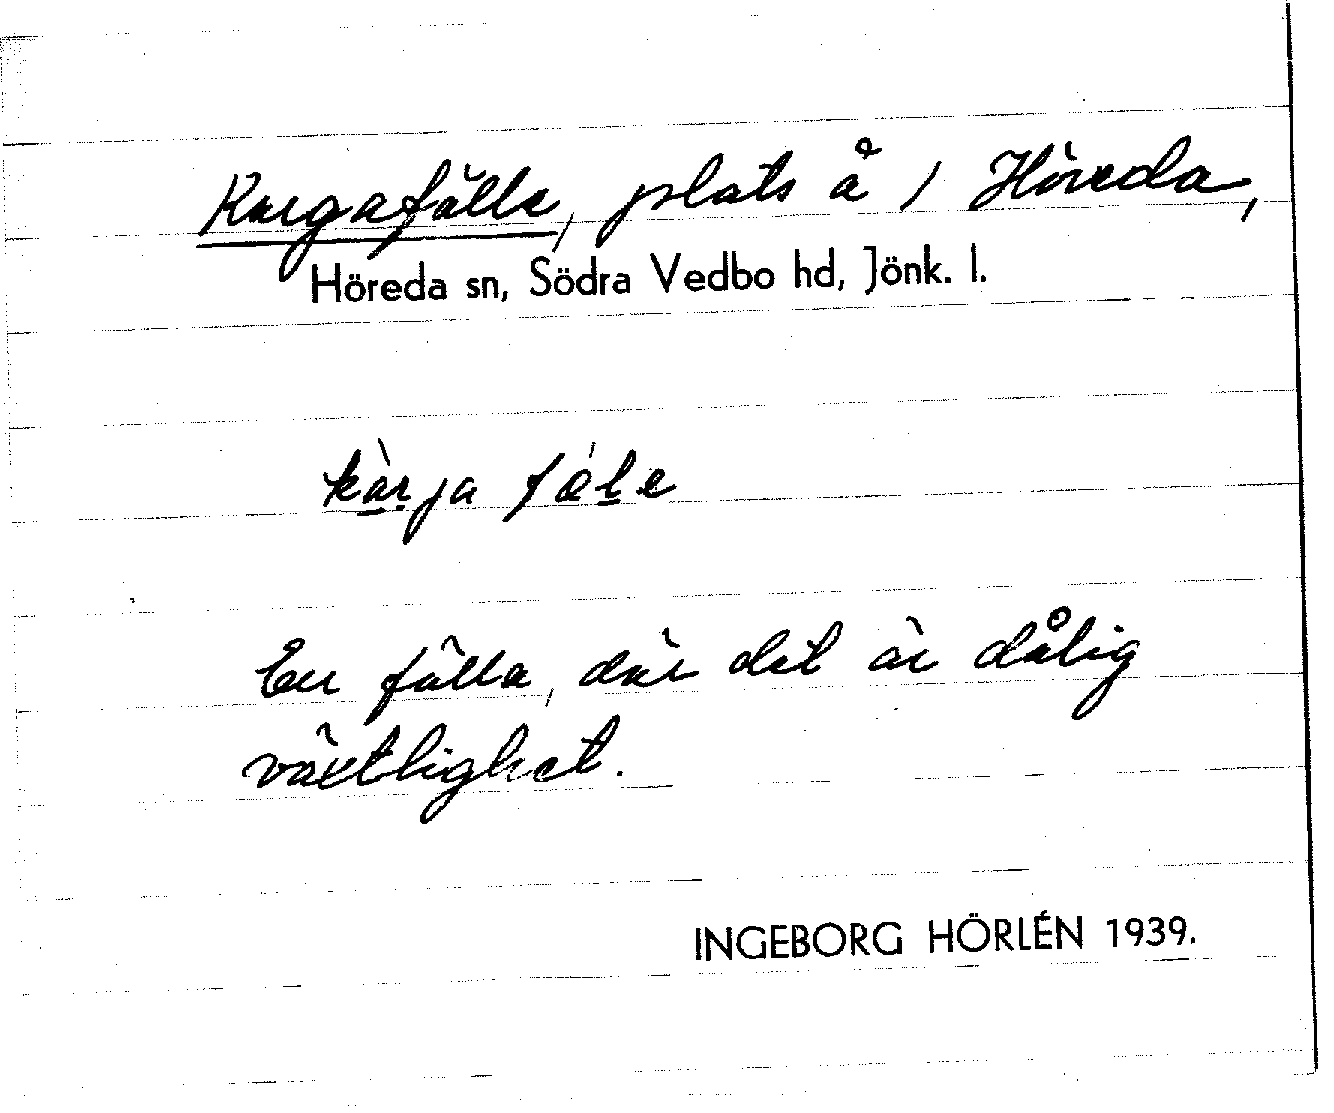 Kargafälle, plats å 1 Höreda,
Höreda sn, Södra Vedbo hd, Jönk. l.
kàrja fäle
En fälla, där det är dålig
växtlighet.
INGEBORG HÖRLÉN 1939.